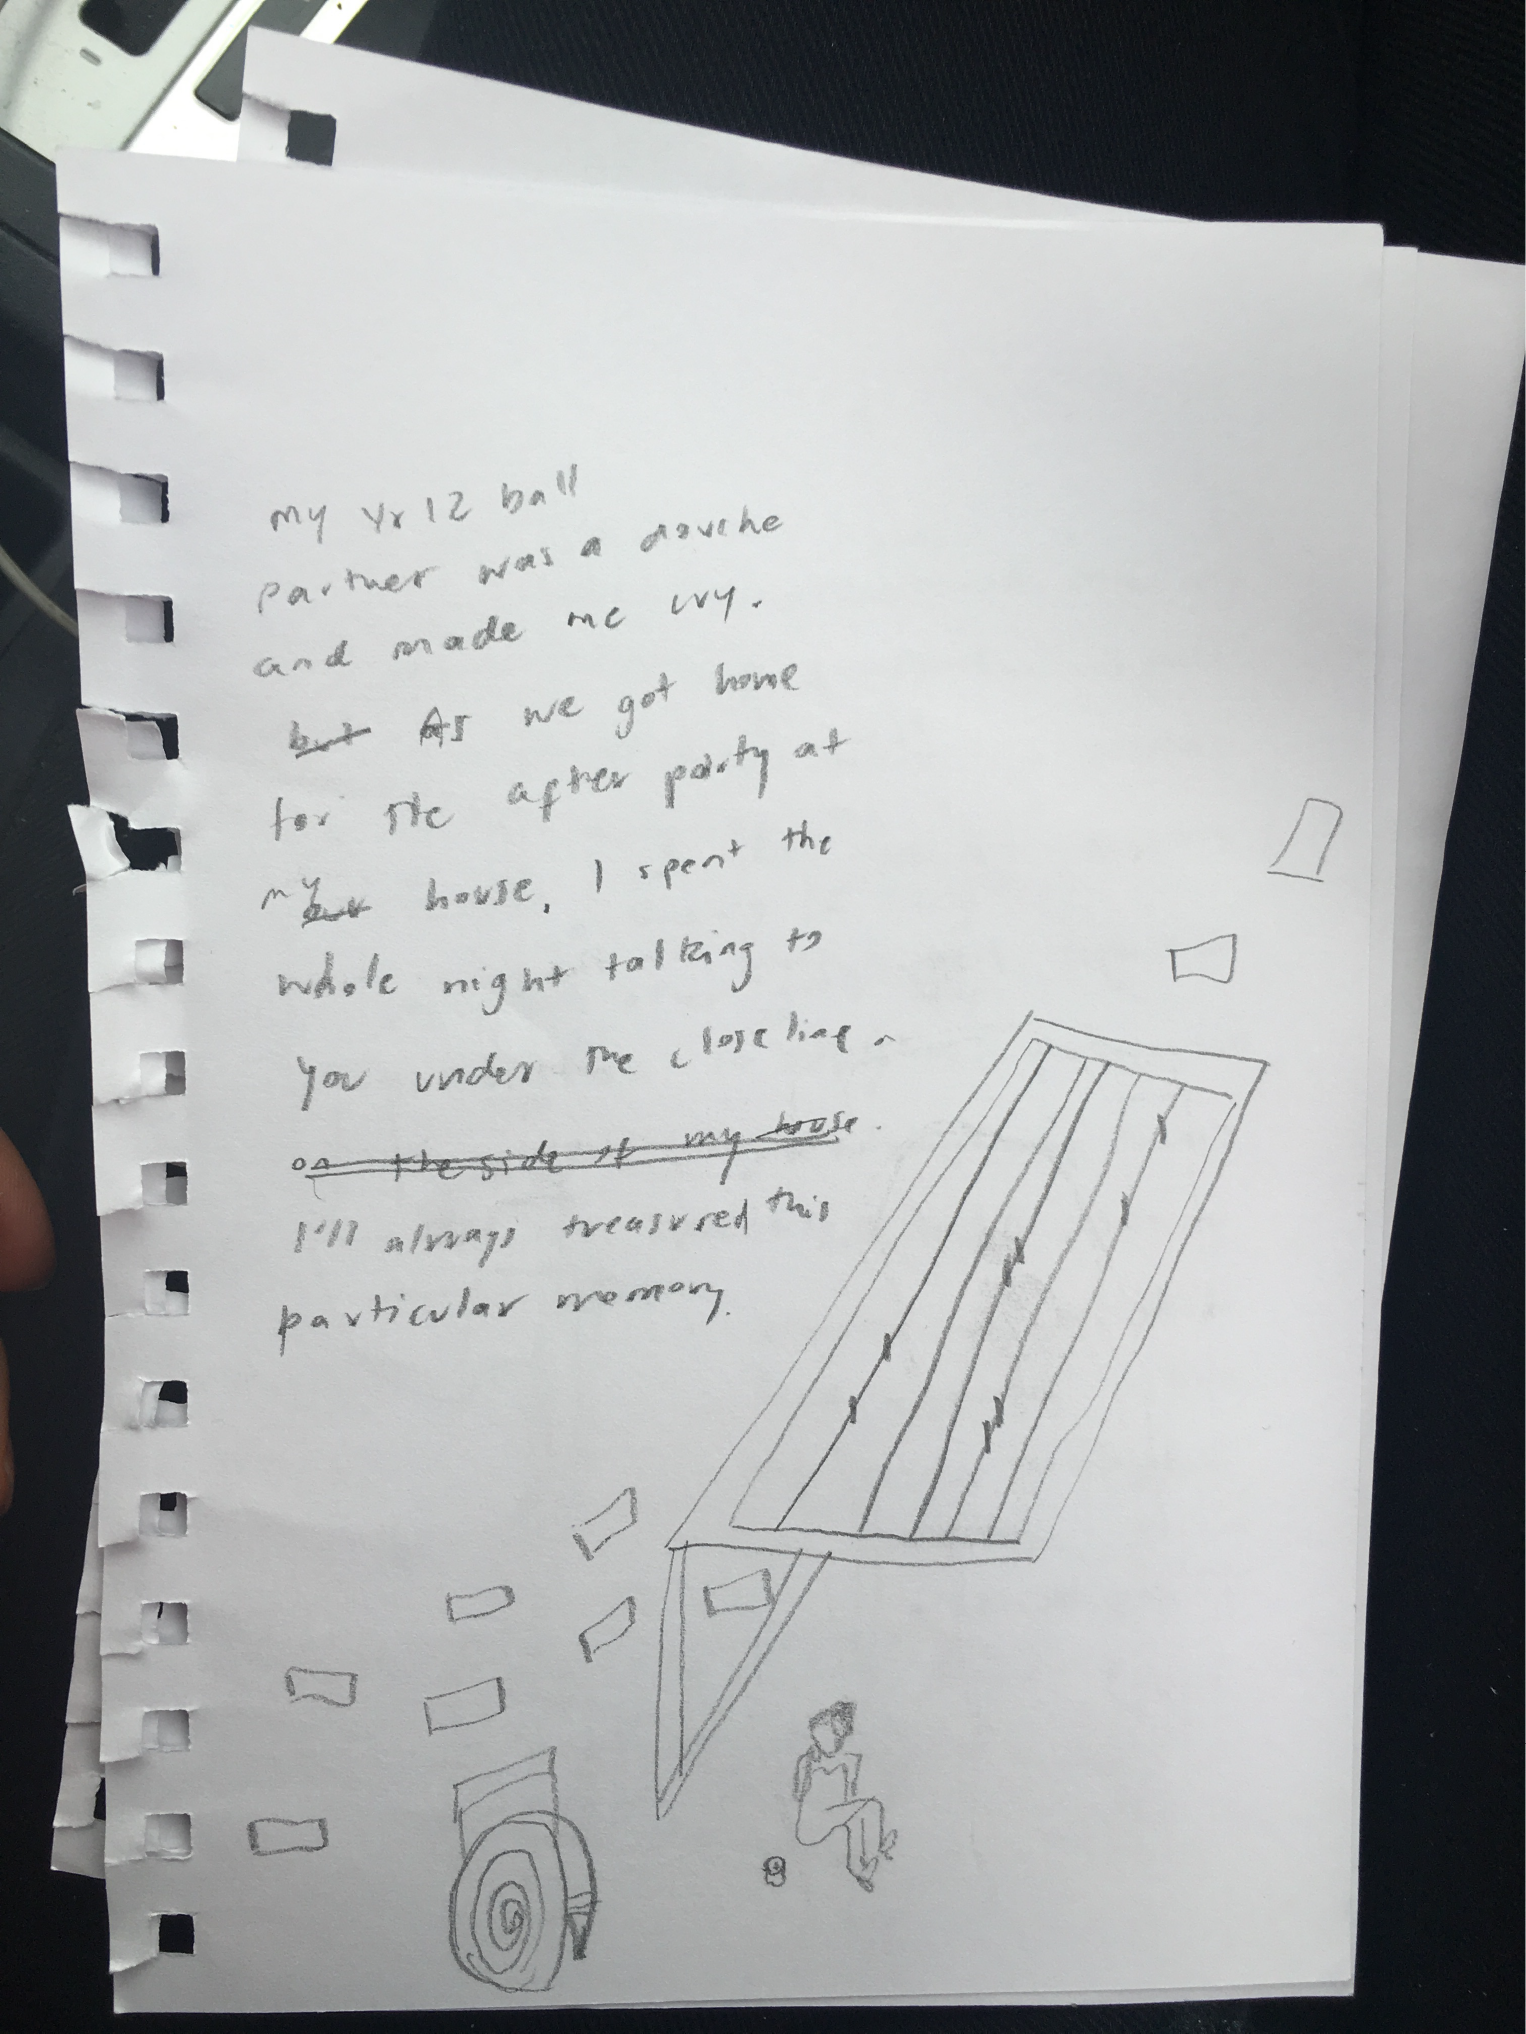 My Yr 12 ball
partner was a douche
and made me cry.
but As we got home
for the after party at
my our house, I spent the
whole night talking to
you under the close line.
on the side of my house.
I'll always treasured this
particular memory.